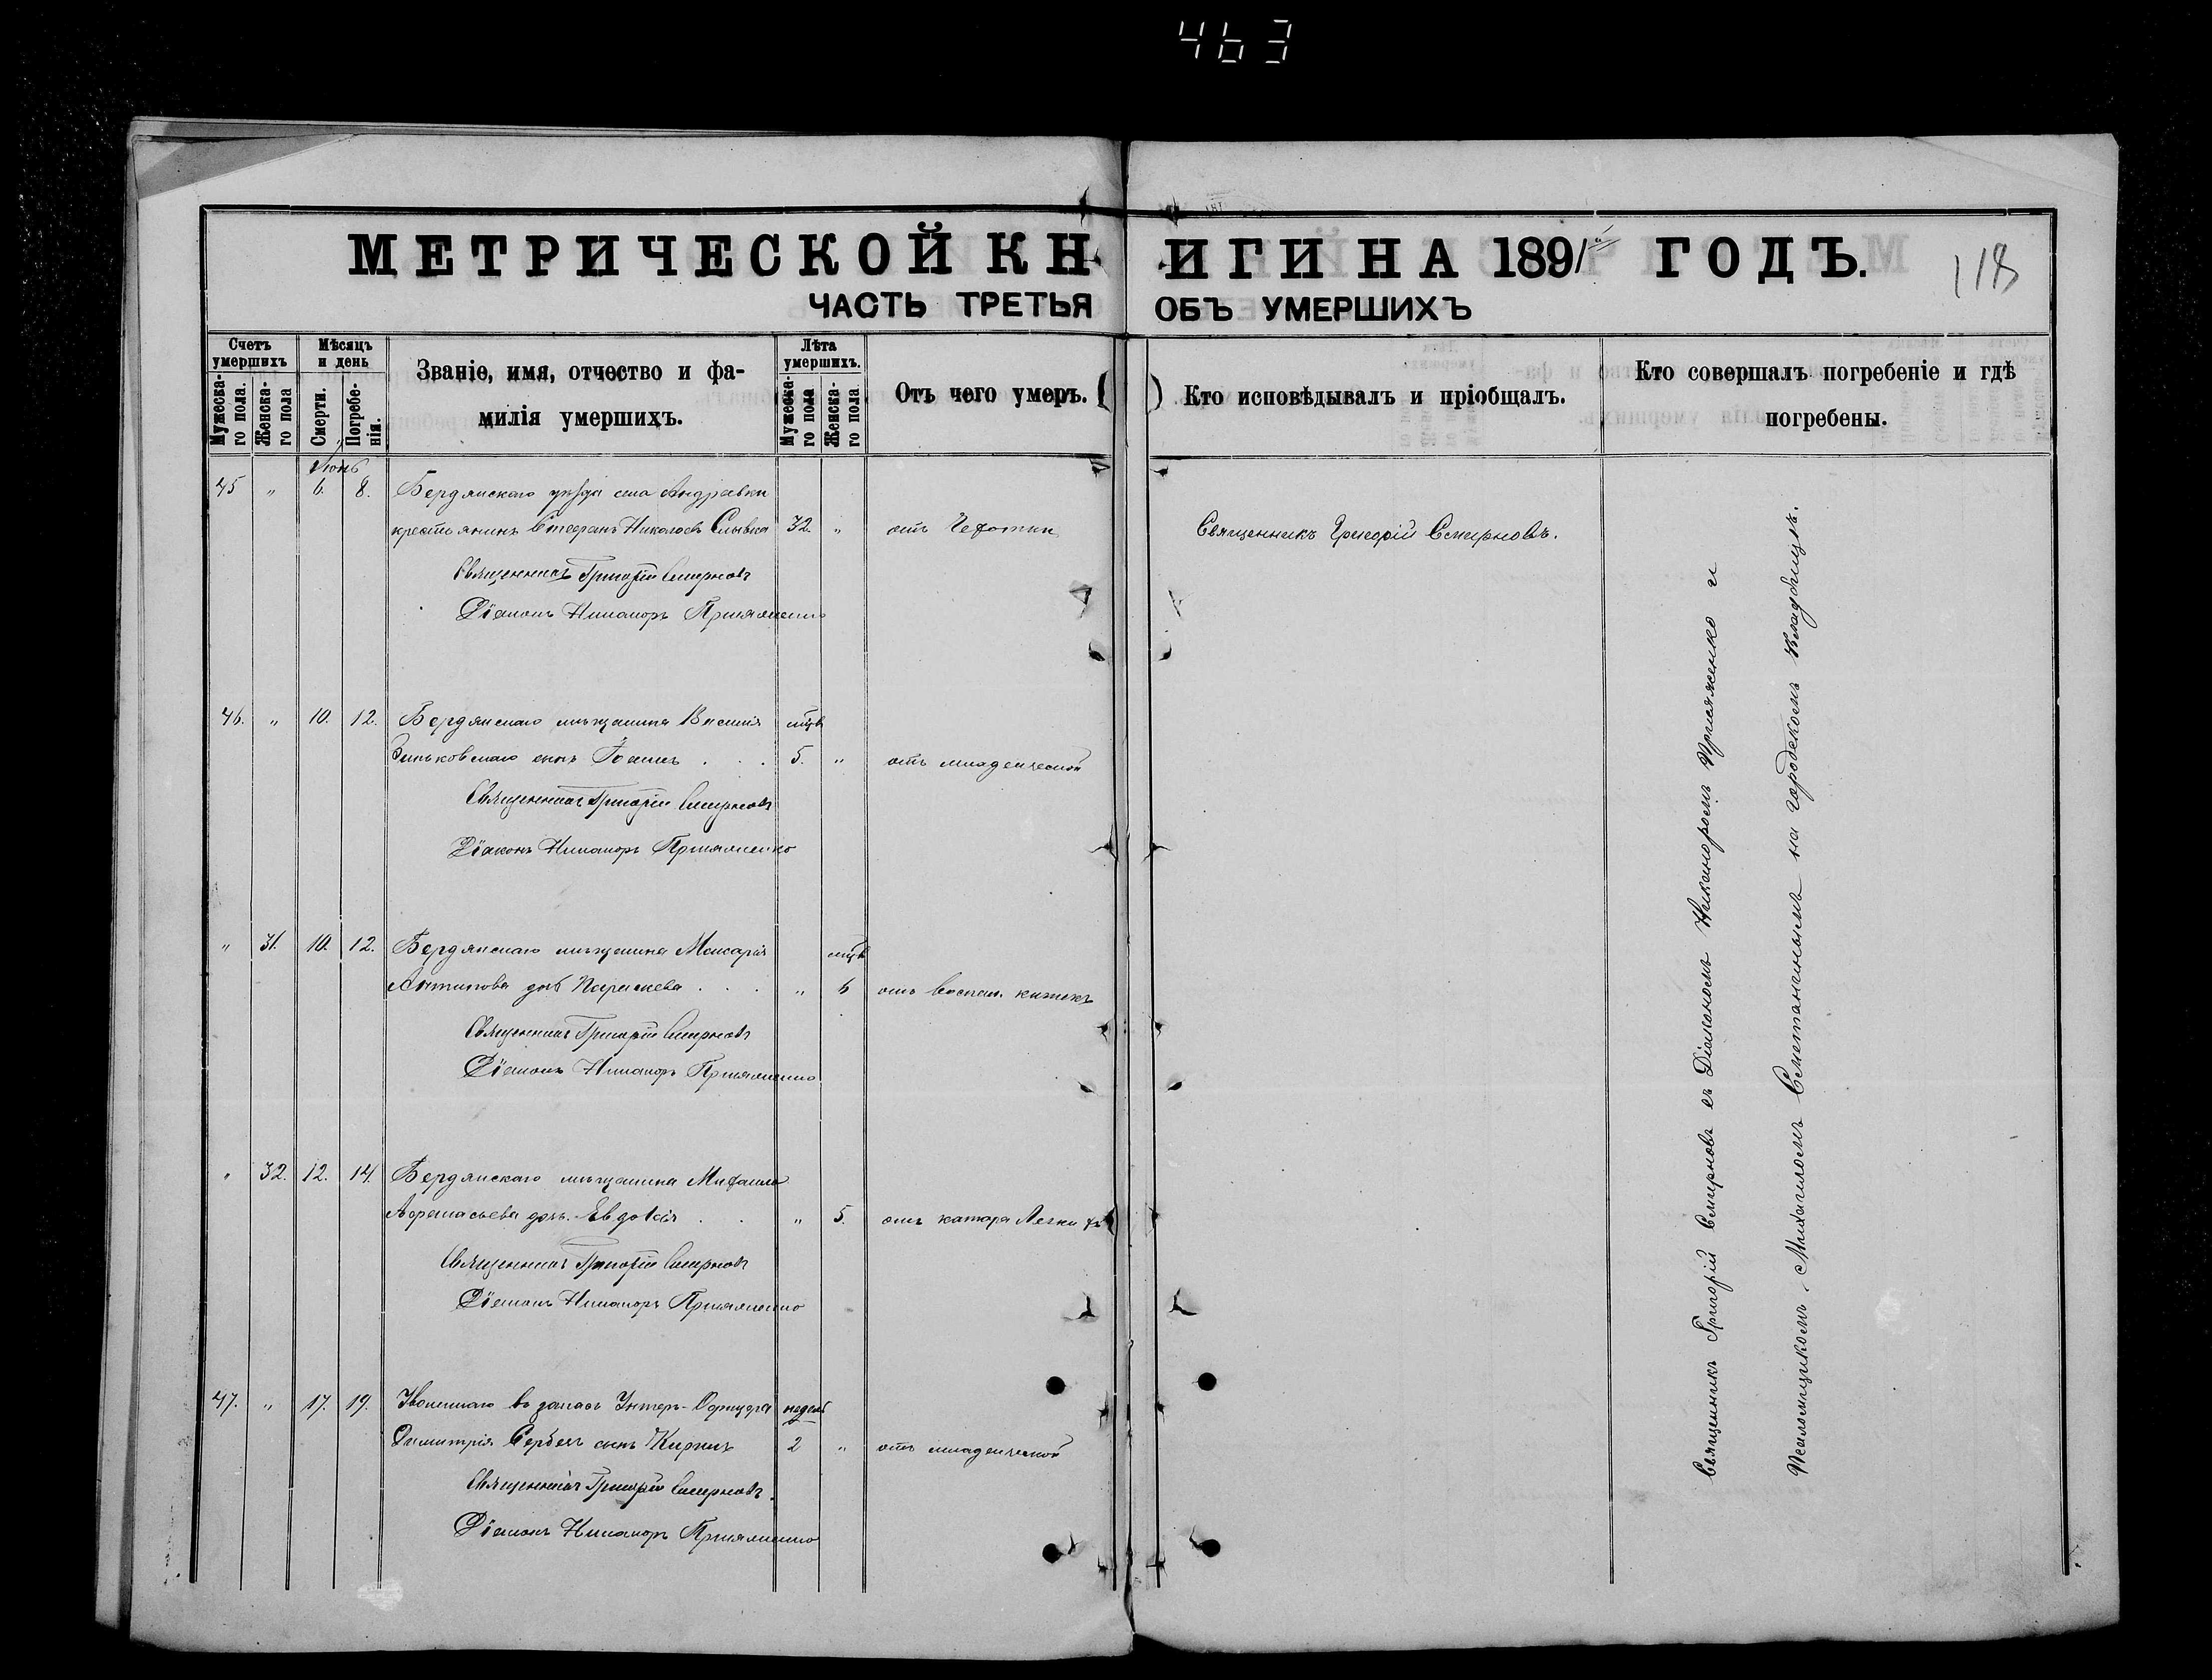 463
МЕТРИЧЕСКОЙ КНИГИ НА 1891 ГОДЪ.
118
ЧАСТЬ ТРЕТЬЯ ОБЪ УМЕРШИХЪ
Счетъ умершихъ
Мужеска-го пола.
Женска-го пола
Мѣсяцъ и день
Смерти.
Погребе-нія.
Званіе, имя, отчество и фа-
милія умершихъ.
Лѣта умершихъ.
Мужеска-го пола
Женска-го пола
Отъ чего умеръ.
Кто исповѣдывалъ и пріобщалъ.
Кто совершалъ погребеніе и гдѣ
погребены.
Іюнь
45 " 6. 8. Бердянскаго уѣзда села Андревки
крестьянинъ Стефанъ Николаевъ 32. " отъ Чехотки Священникъ Григорій Смирновъ.
Священникъ Григорій Смирновъ
Діаконъ Никаноръ Пригяженко
46. " 10. 12. Бердянскаго мѣщанина Василія мцв
Зиньковскаго сынъ Іоаннъ . . . 5. " отъ младенческой
Священникъ Григорій Смирновъ
Діаконъ Никаноръ
" 31. 10. 12. Бердянскаго мѣщанина Макарія мцв
Антипова дочь Параскева . . . " 6 отъ воспал. кишекъ
Священникъ Григорій Смирновъ
Діаконъ Никаноръ
" 32. 12. 14. Бердянскаго мѣщанина Михаила
Афанасьева дочь Евдокія . . " 5. отъ катара
Священникъ Григорій Смирновъ
Діаконъ Никаноръ
47. " 17. 19. въ запасъ Унтеръ-Офицера недель
Димитрія сынъ Кириллъ 2 " отъ младенческой
Священникъ Григорій Смирновъ.
Діаконъ Никаноръ
Священникъ Григорій Смирновъ съ Діакономъ Никаноромъ и
Псаломщикомъ Михаиломъ на городскомъ кладбищѣ.